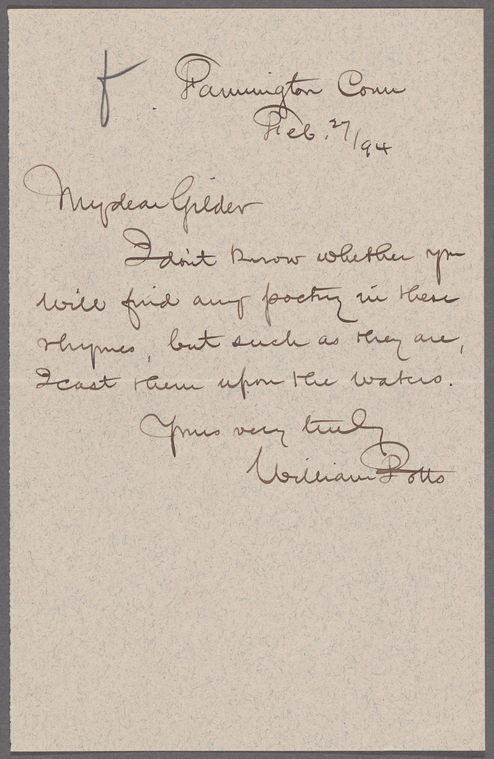 f.
Farmington Conn
Feb. 27/94
My dear Gilder
I don't know whether you
will find any poetry in these
rhymes, but such as they are,
I cast them upon the waters.
Yours very truly
William Potts